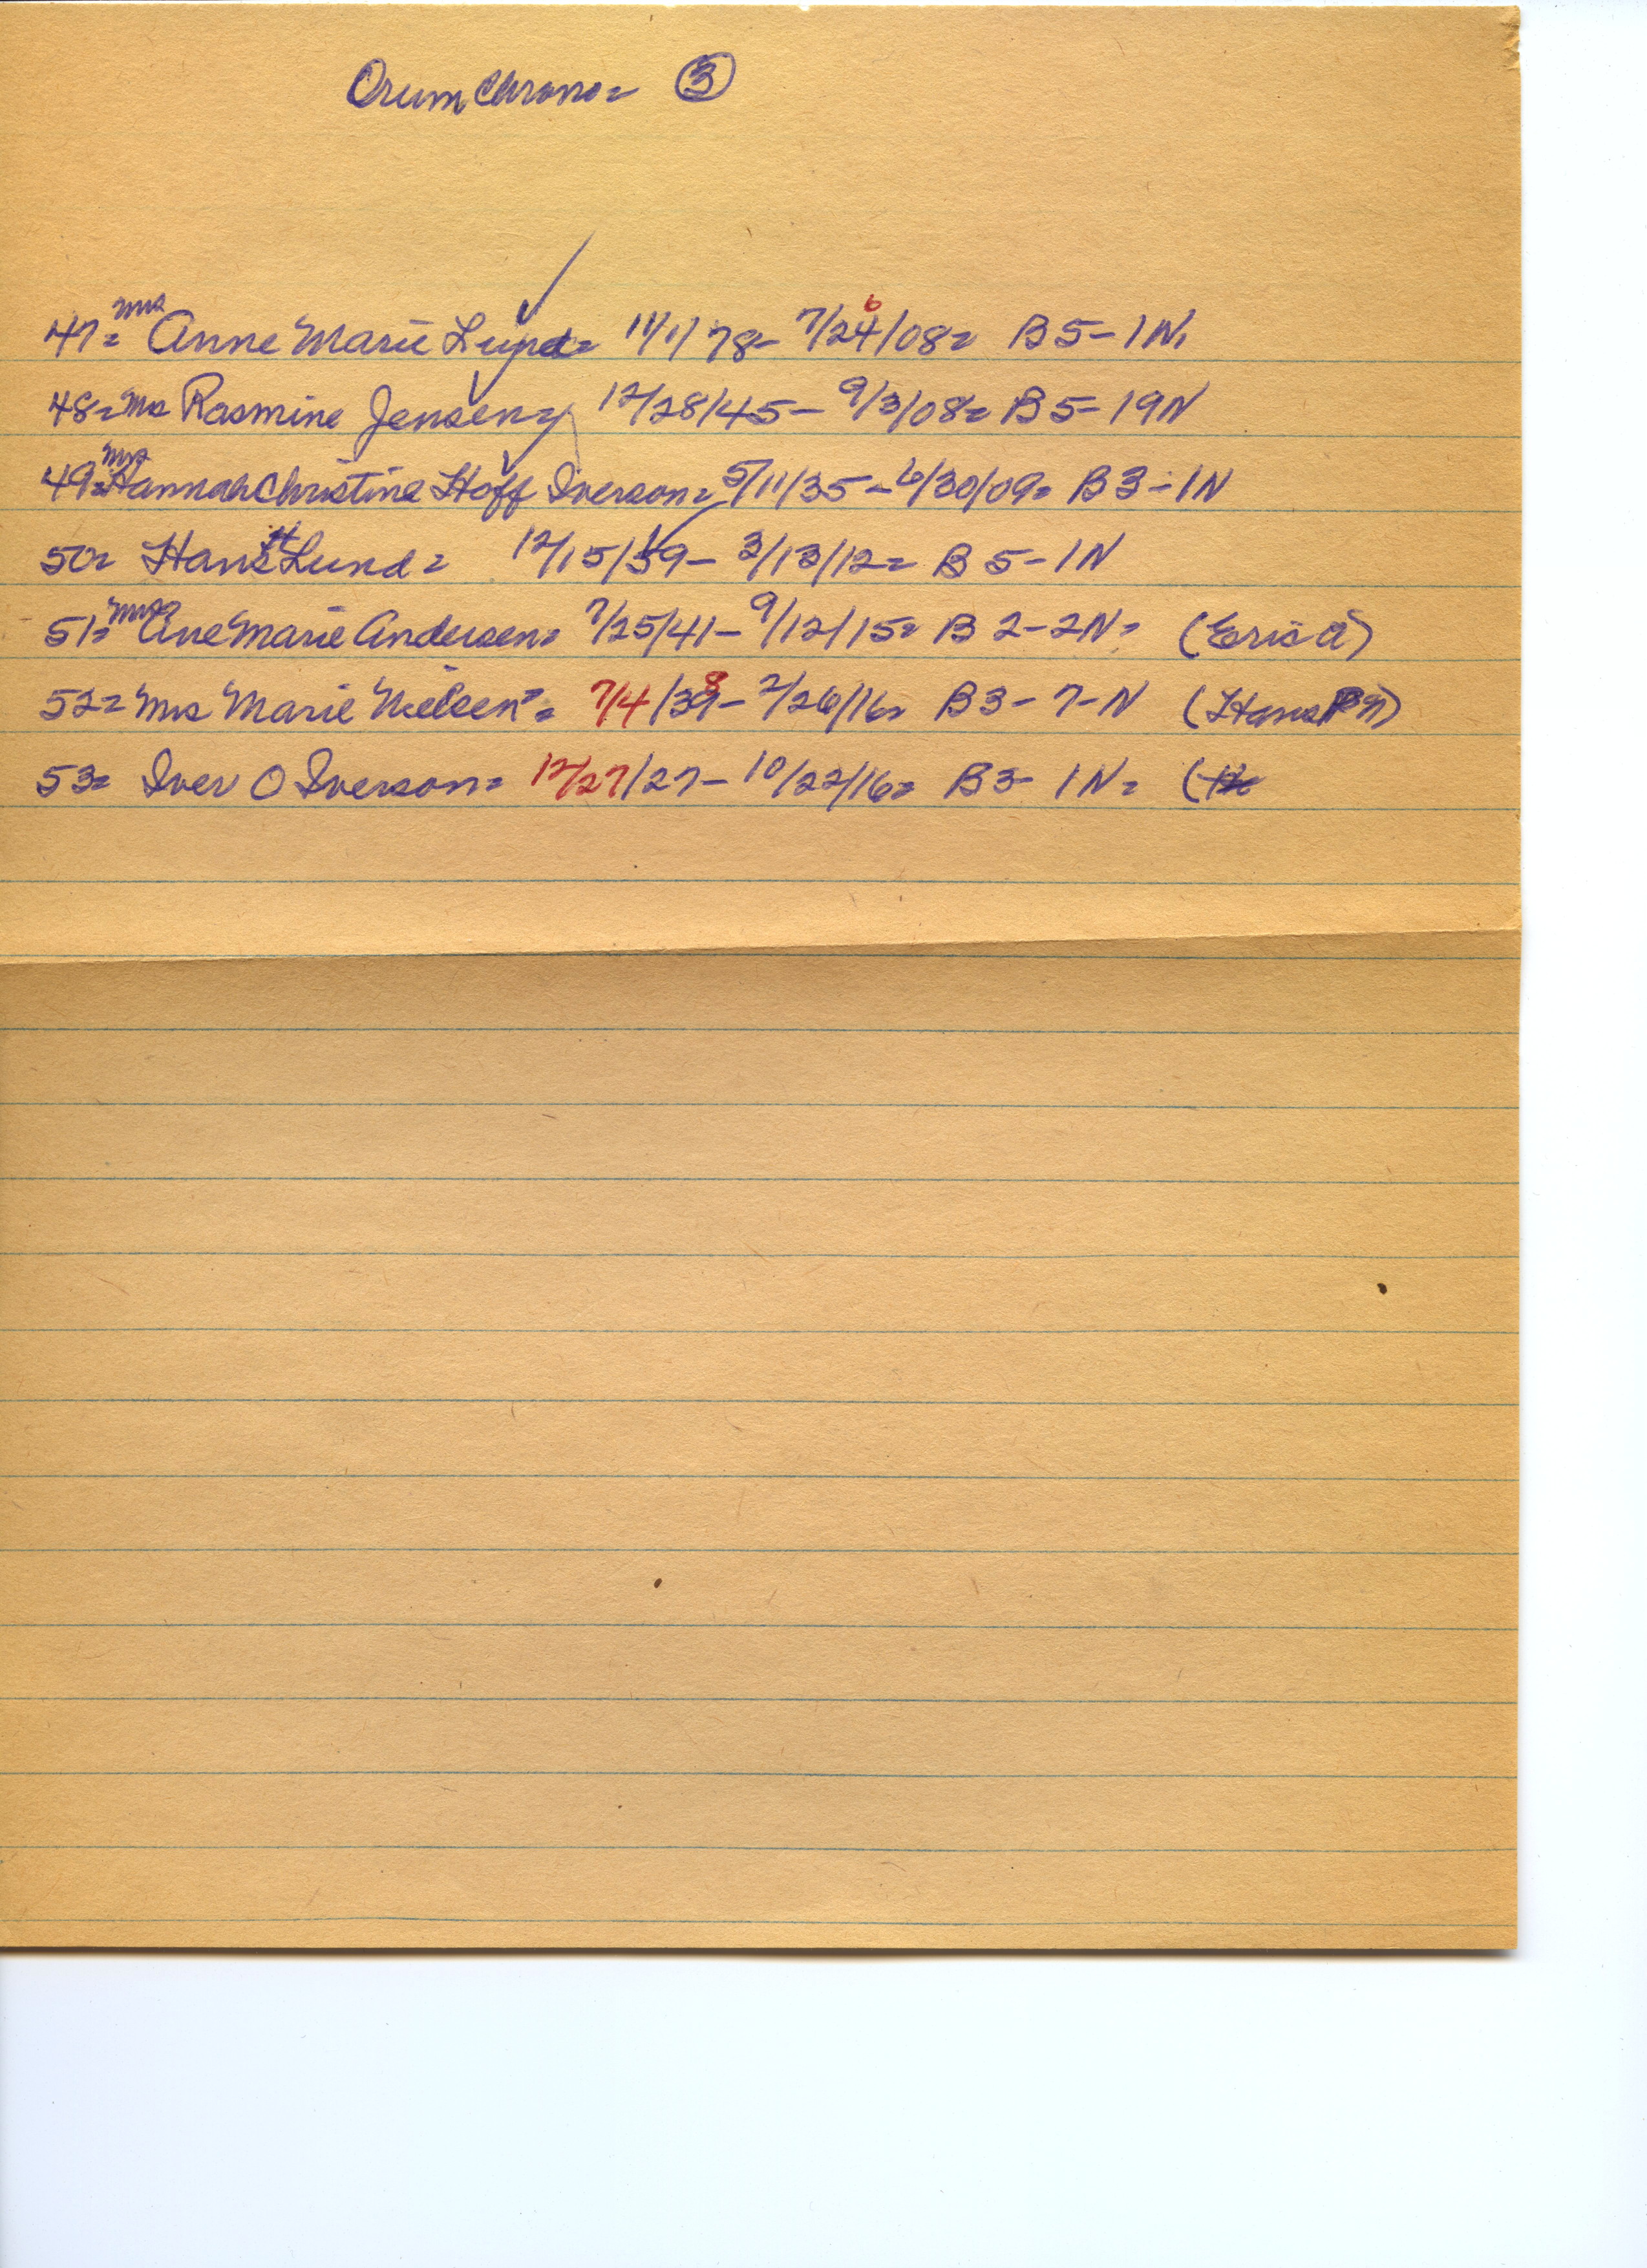 Orum Chrono= ③
47= Mrs Anne Marie Lund= 11/1/78- 7/24/08= B5-1N.
6
48= Mrs Rasmine Jensen= 12/28/45- 9/3/08= B5-19N
49= Mrs Hannah Christine Hoff Iverson= 5/11/35- 6/30/09= B3-1N
50= Hans H Lund= 12/15/59- 3/13/12= B5-1N
51= Mrs Ane Marie Andersen= 7/25/41- 9/12/15= B2-2N= (Eris A)
52= Mrs Marie Nielsen= 7/4/39- 2/26/16= B3-7-N (Hans P N)
8
53= Iver O Iverson= 12/27/27- 10/22/16= B3-1N= (